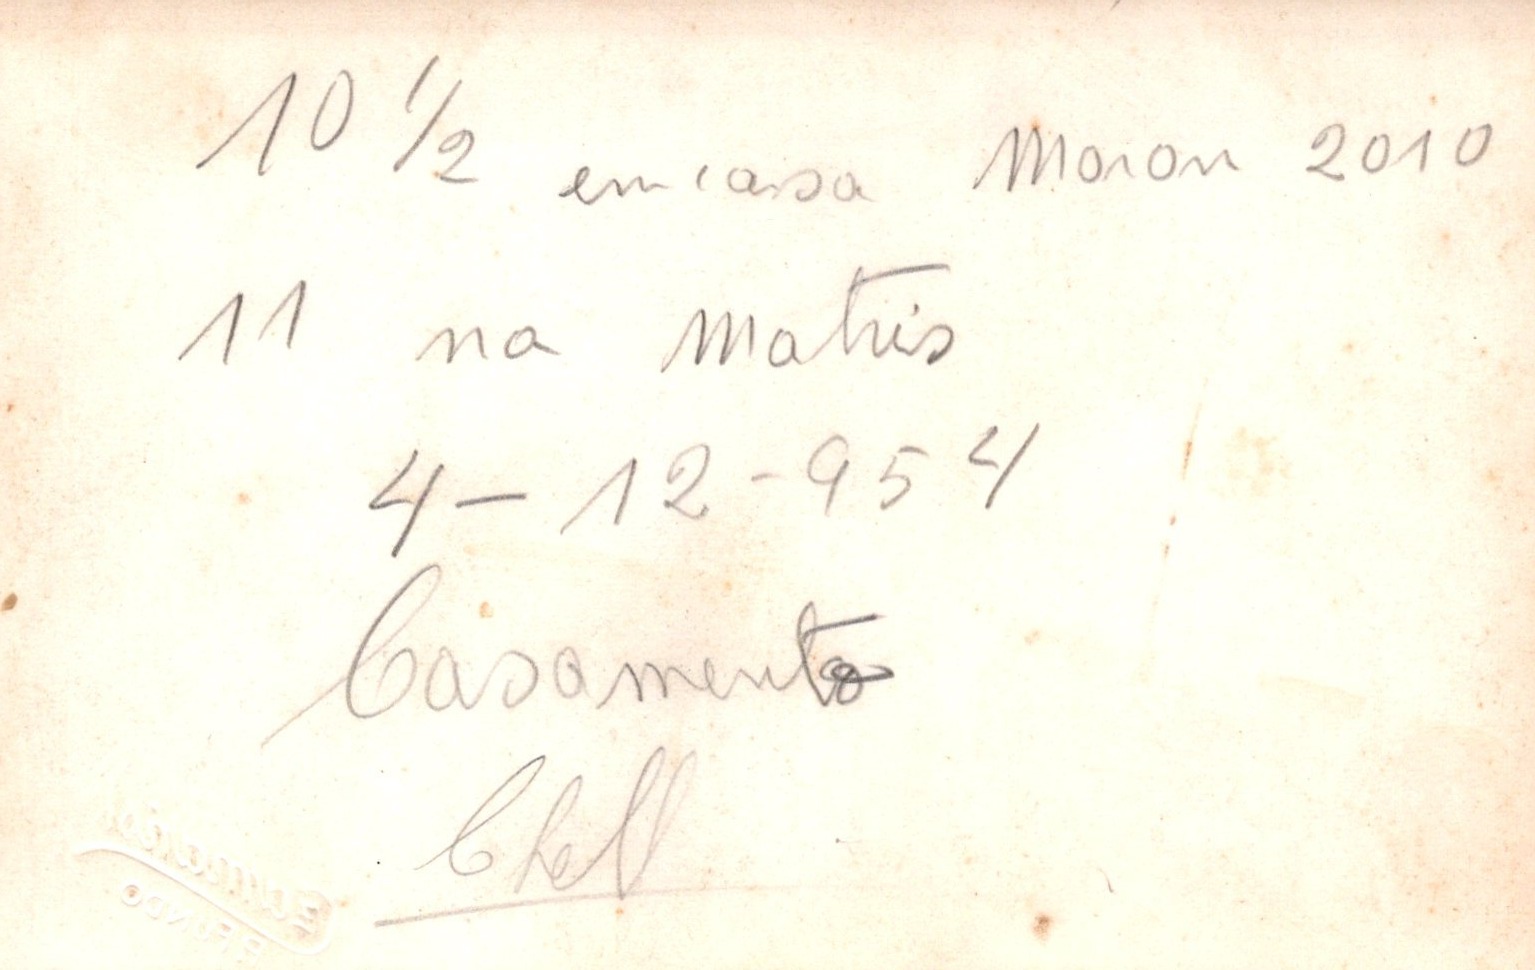 10 1/2 em casa Moron 2010
11 na Matris
4 - 12 - 954
Casamento